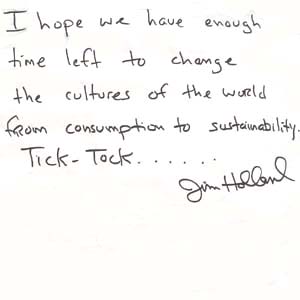 I hope we have enough
time left to change
the cultures of the world
from consumption to sustainability.
Tick-Tock......
Jim Holland